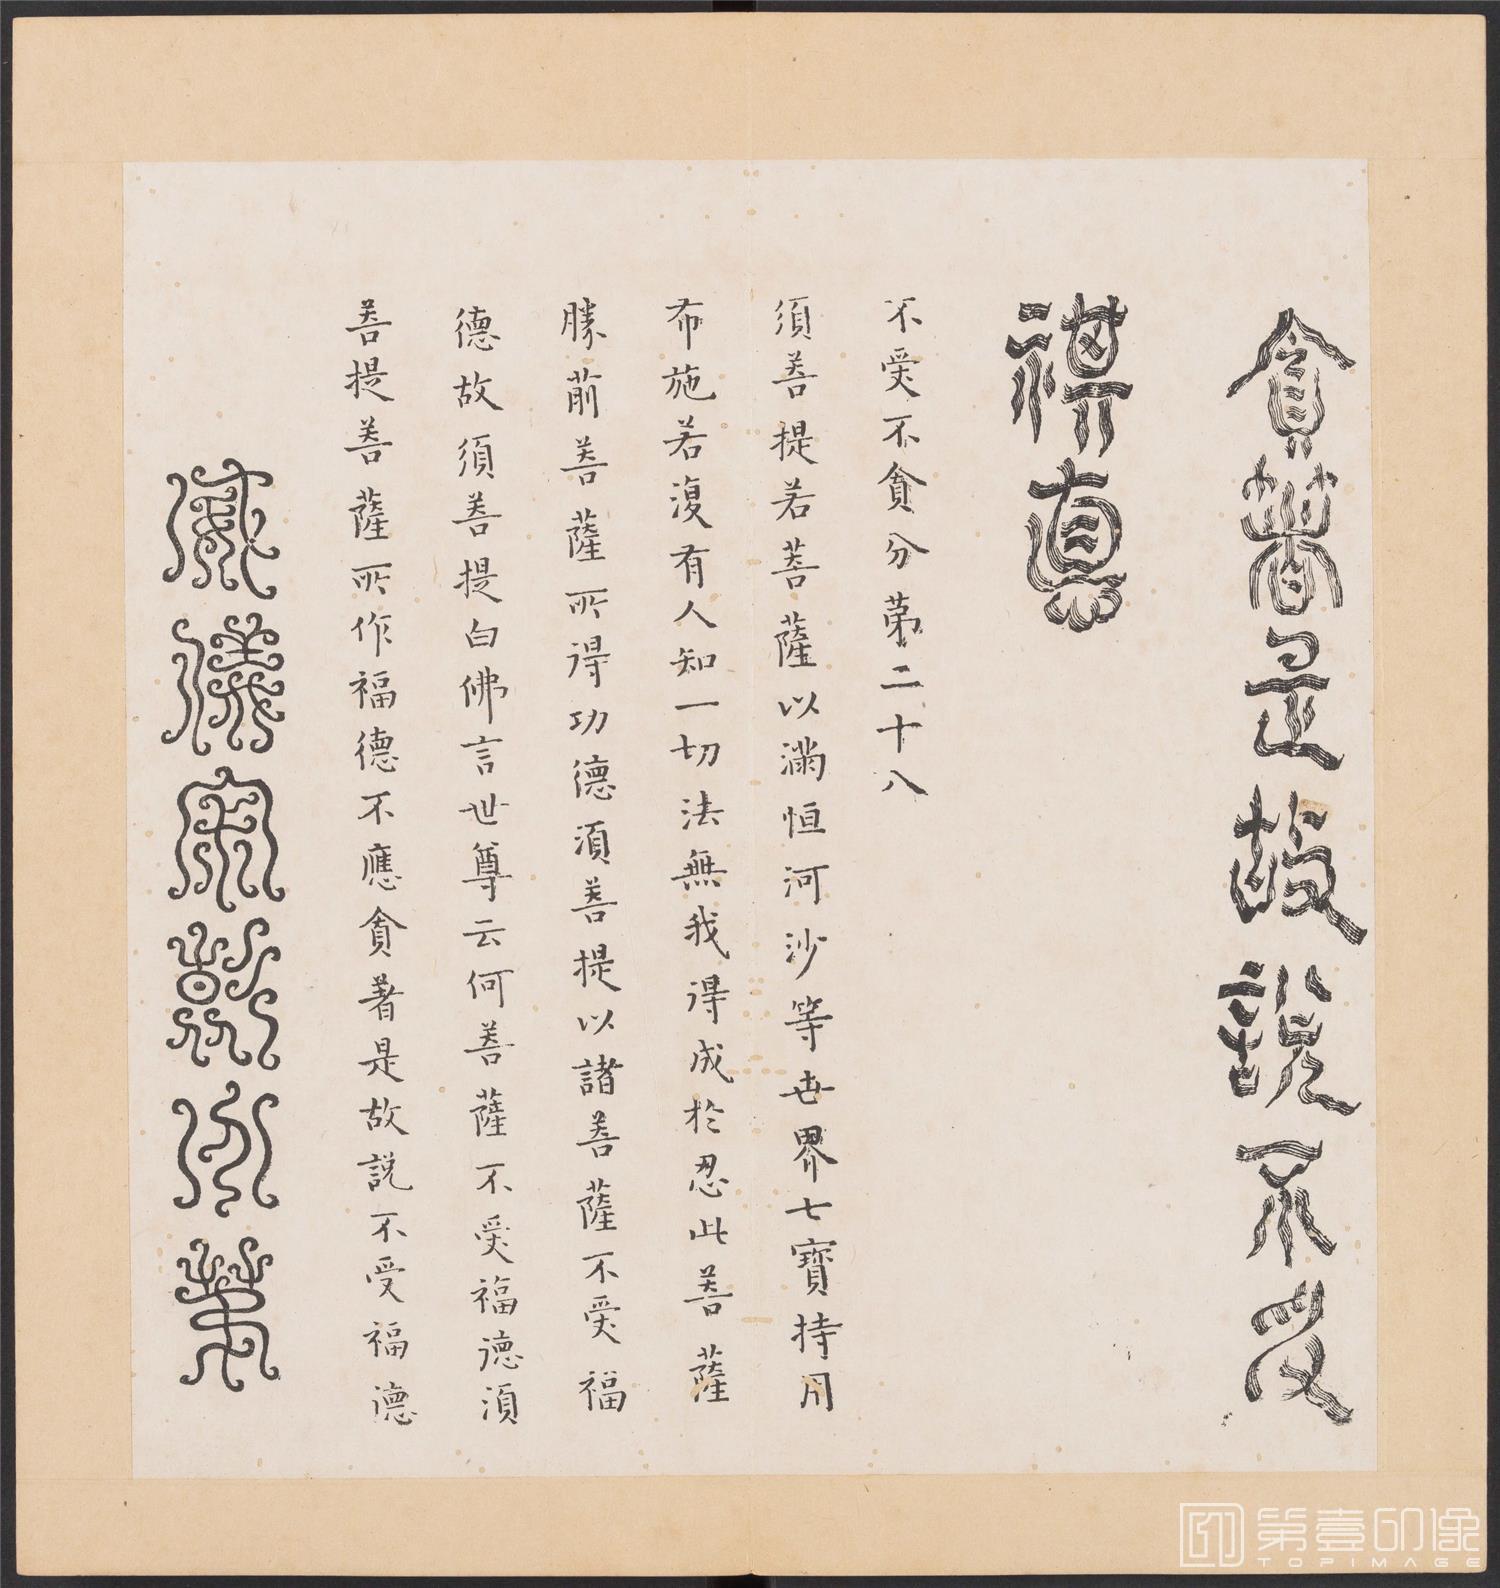 貪著是故說不受
福德
不受不貪分第二十八
須菩提若菩薩以滿恒河沙等世界七寶持用
布施若復有人知一切法無我得成於忍此菩薩
勝前菩薩所得功德須菩提以諸菩薩不受福
德故須菩提白佛言世尊云何菩薩不受福德須
菩提菩薩所作福德不應貪著是故説不受福德
威儀寂静分第
第壹印像
TOPIMAGE